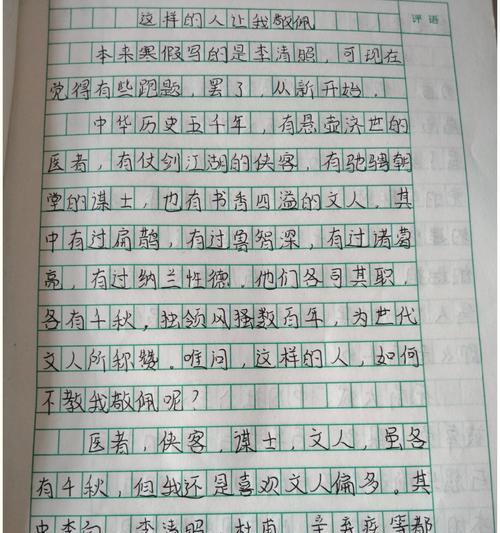 这样的人让我敬佩
评语
本来寒假写的是李清照，可现在
觉得有些跑题，罢了，从新开始。
中华历史五千年，有悬壶济世的
医者，有仗剑江湖的侠客，有驰骋朝
堂的谋士，也有书香四溢的文人，其
中有过扁鹊，有过鲁智深，有过诸葛
亮，有过纳兰性德，他们各司其职，
各有千秋，独领风骚数百年，为世代
文人所称赞。唯问，这样的人，如何
不教我敬佩呢？
医者，侠客，谋士，文人，虽各
有千秋，但我还是喜欢文人偏多。其
中李白，李清照，杜甫，辛弃疾等都